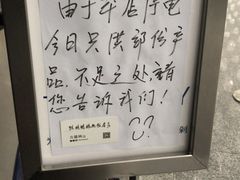 由于本店停电
今日只供部份产
品，不足之处请
您告诉我们！